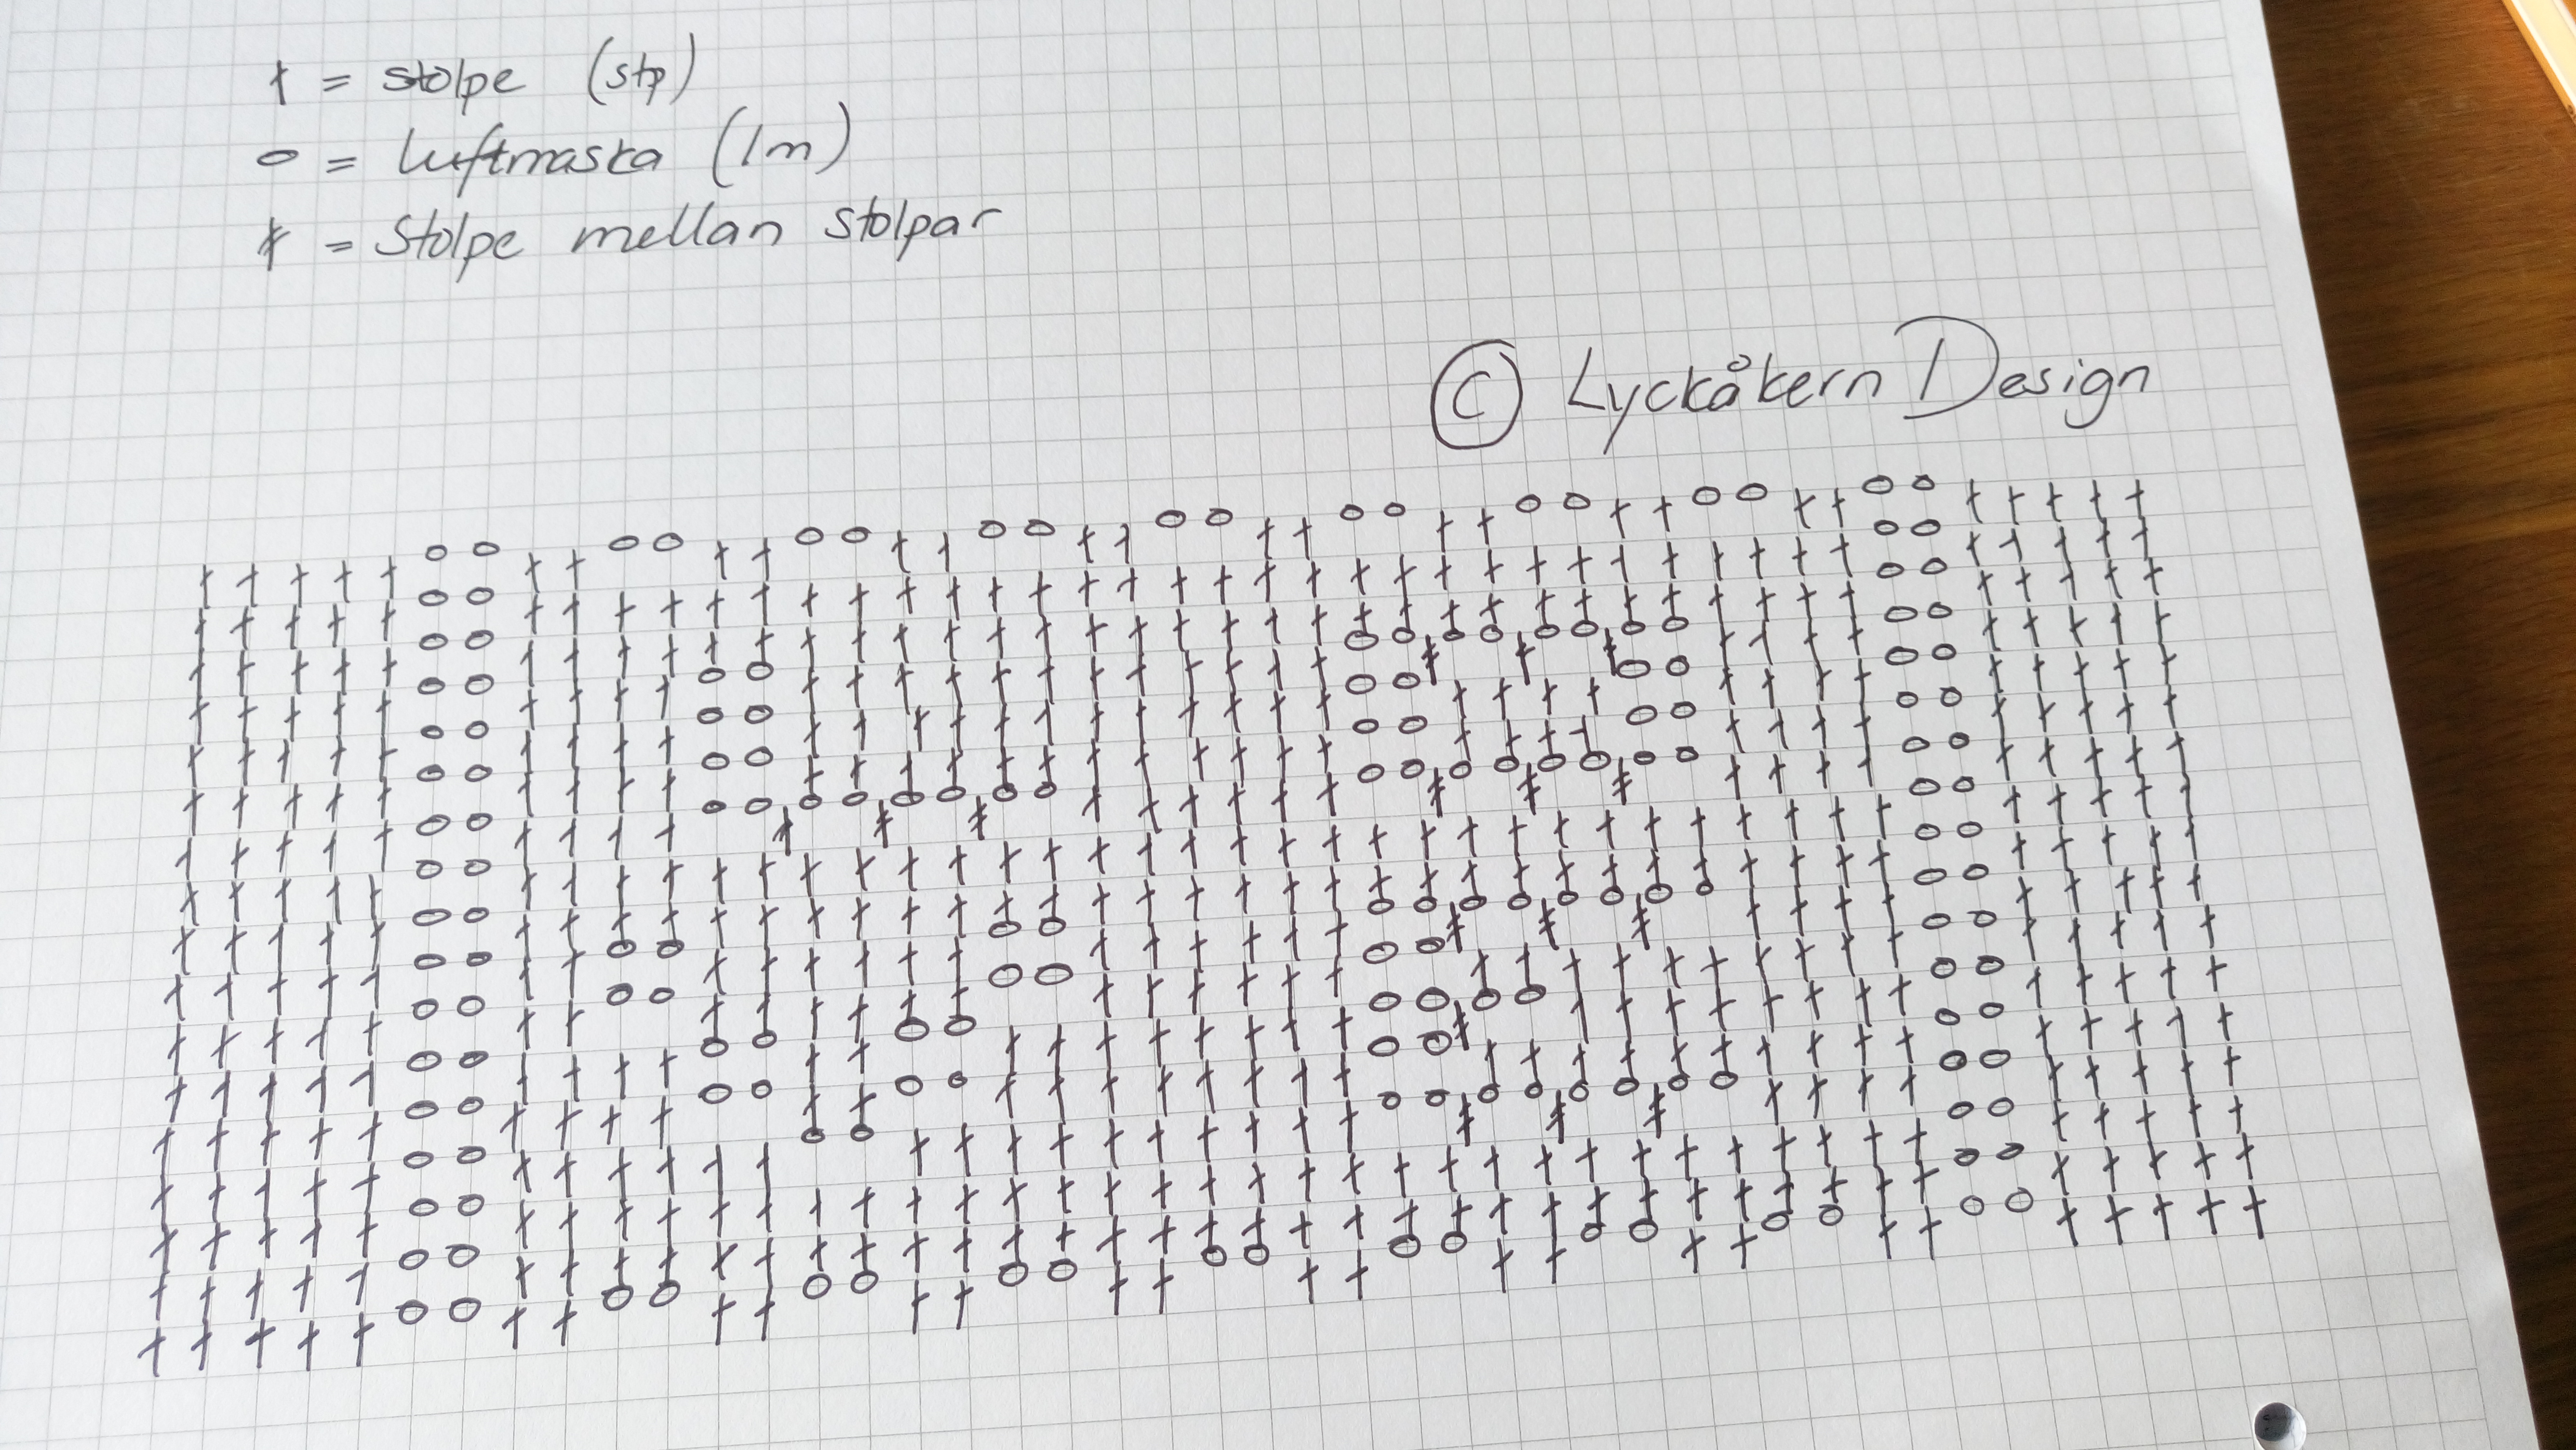 † = stolpe (stp)
o = luftmaska (lm)
ǂ = Stolpe mellan stolpar
© Lyckåkern Design